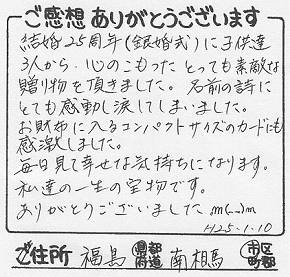 ご感想 ありがとうございます
結婚25周年(銀婚式)に子供達
3人から、心のこもったとっても素敵な
贈り物を頂きました。名前の詩に
とても感動し涙してしまいました。
お財布に入るコンパクトサイズのカードにも
感激しました。
毎日見て幸せな気持ちになります。
私達の一生の宝物です。
ありがとうございました m(__)m
H25.1.10
ご住所 福島 都道府県 南相馬 市区町郡